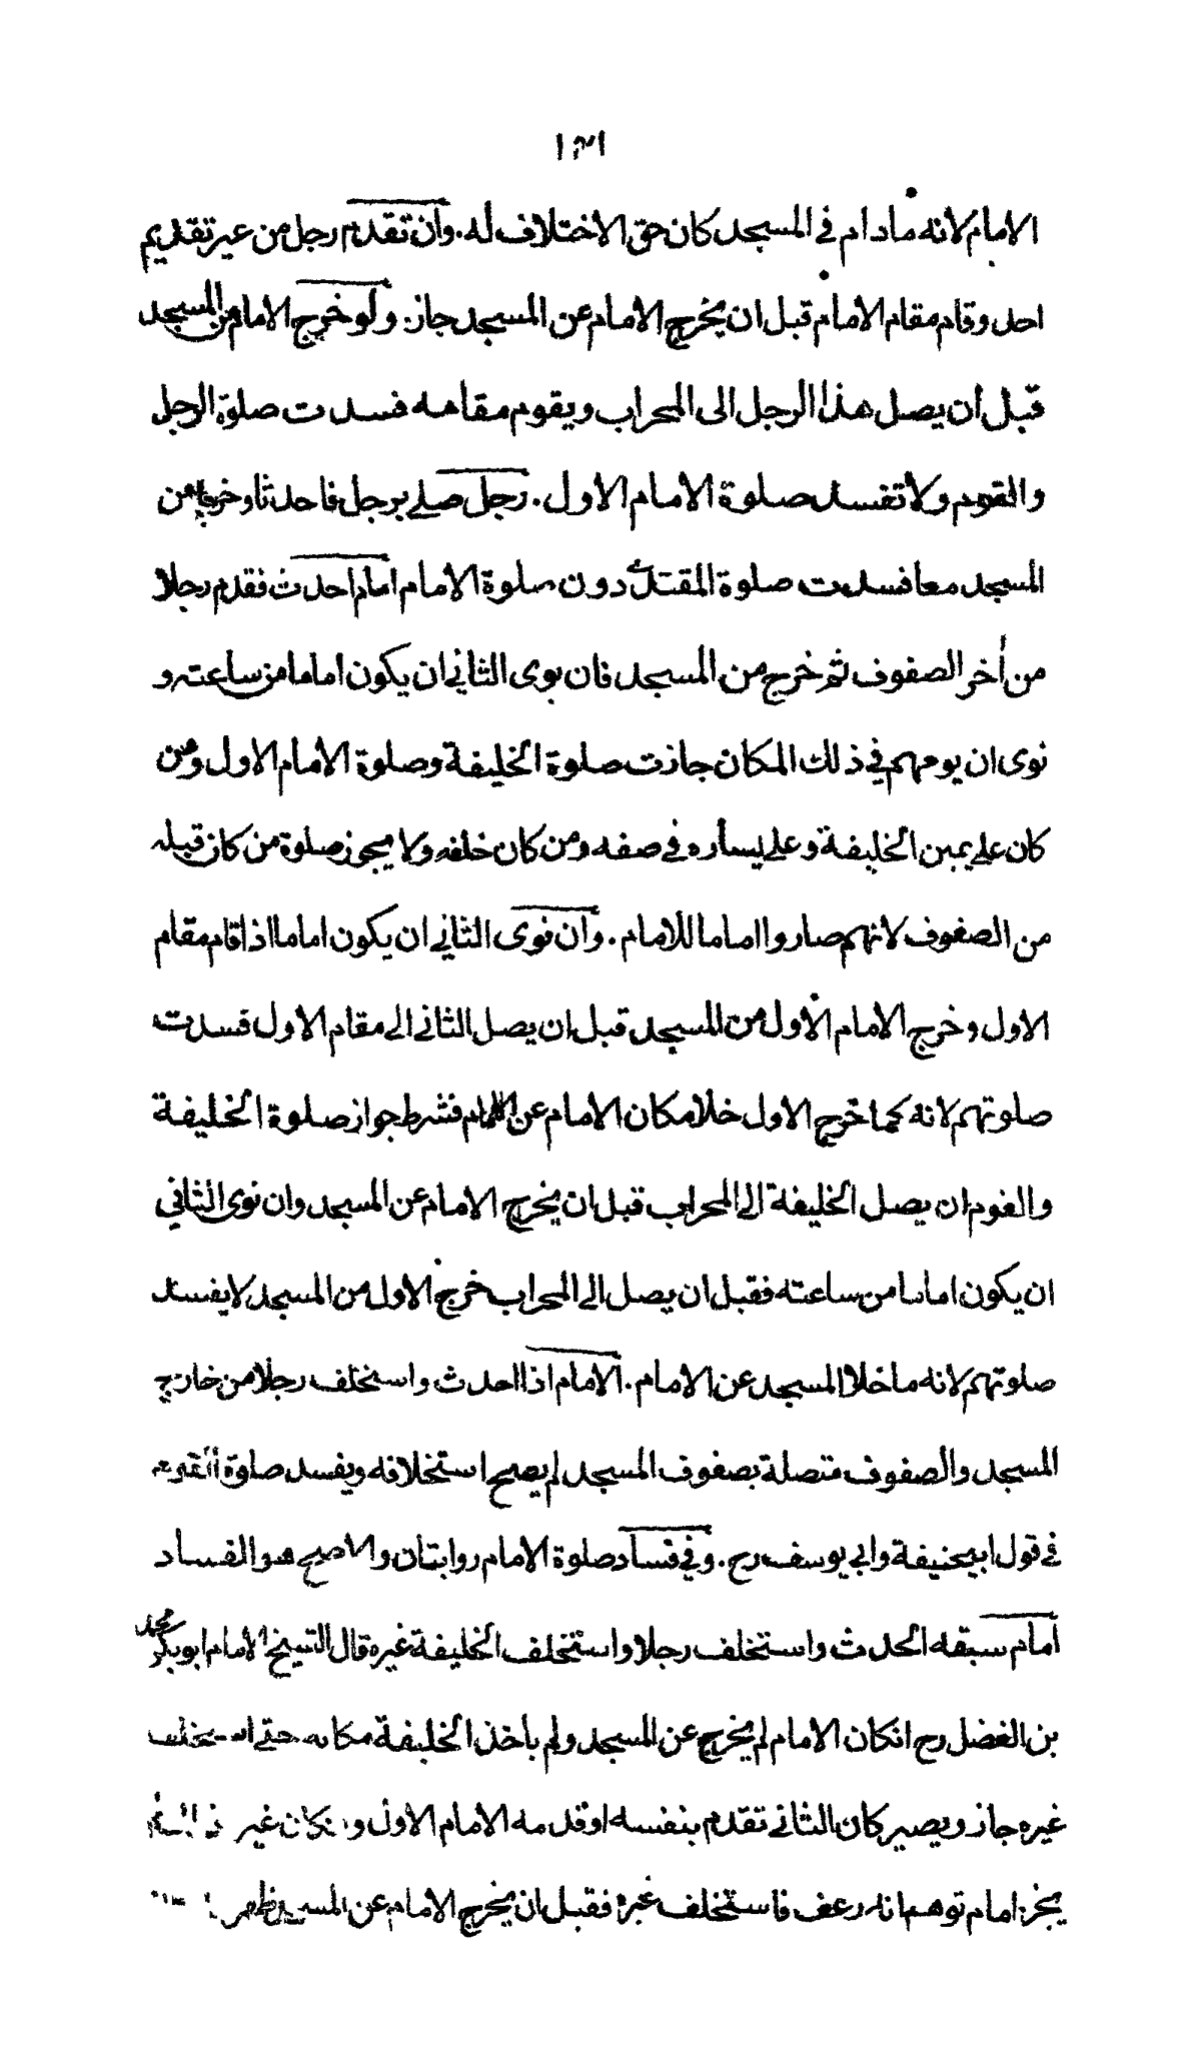 الامام لانه مادام في المسجد كان حق الاختلاف له. وان تقدم رجل من غير تقديم
احد وقام مقام الامام قبل ان يخرج الامام عن المسجد جاز. ولو خرج الامام من المسجد
قبل ان يصل هذا الرجل الى المحراب ويقوم مقامه فسدت صلوة الرجل
والقوم ولا تفسد صلوة الامام الاول. رجل صلى برجل فاحدثا وخرجا من
المسجد معا فسدت صلوة المقتدى دون صلوة الامام امام احدث فقدم رجلا
من أخر الصفوف ثم خرج من المسجد فان نوى الثاني ان يكون اماما من ساعته و
نوى ان يومهم في ذلك المكان جازت صلوة الخليفة وصلوة الامام الاول ومن
كان على يمين الخليفة وعلى يساره في صفه ومن كان خلفه ولا يجوز صلوة من كان قبله
من الصفوف لانهم صاروا اماما للامام. وان نوى الثاني ان يكون اماما اذا قام مقام
الاول وخرج الامام الاول من المسجد قبل ان يصل الثاني الى مقام الاول فسدت
صلوتهم لانه كما خرج الاول خلا مكان الامام عن الامام فشرط جواز صلوة الخليفة
والقوم ان يصل الخليفة الى المحراب قبل ان يخرج الامام عن المسجد وان نوى الثاني
ان يكون اماما من ساعته فقبل ان يصل الى المحراب خرج الاول من المسجد لا يفسد
صلوتهم لانه ما خلا المسجد عن الامام. الامام اذا احدث واستخلف رجلا من خارج
المسجد والصفوف متصلة بصفوف المسجد لم يصح استخلافه ويفسد صلوة القوم
في قول ابيحنيفة وابي يوسف رح. وفي فساد صلوة الامام روايتان والاصح هو الفساد
امام سبقه الحدث واستخلف رجلا واستخلف الخليفة غيره قال الشيخ الامام ابوبكر محمد
بن الفضل رح انكان الامام لم يخرج عن المسجد ولم ياخذ الخليفة مكانه حتى استخلف
غيره جاز ويصير كان الثاني تقدم بنفسه او قدمه الامام الاول وانكان غير
يجز. امام توهم انه رعف فاستخلف غيره فقبل ان يخرج الامام عن المسجد ظهر